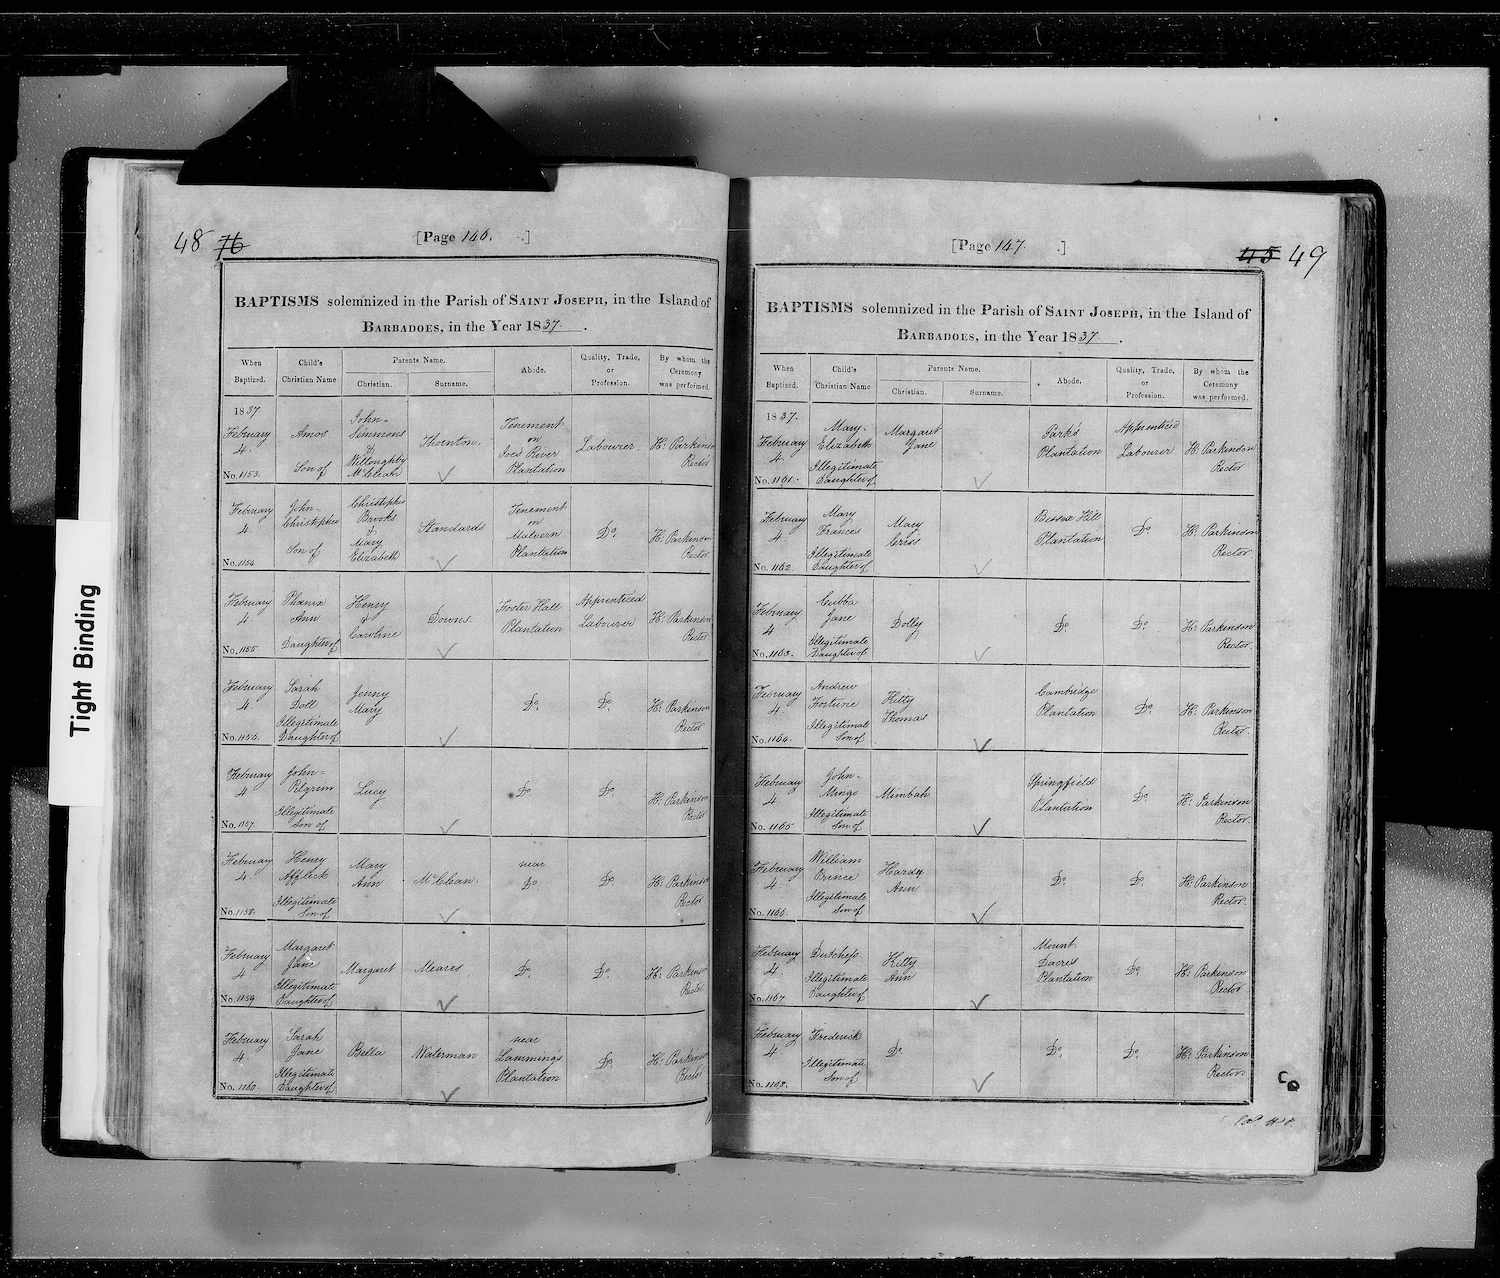 Tight Binding
48 76
[Page 146. ]
BAPTISMS solemnized in the Parish of SAINT JOSEPH, in the Island of
BARBADOES, in the Year 1837.
When Baptized. Child's Christian Name Parents Name. Christian. Surname. Abode. Quality, Trade, or Profession. By whom the Ceremony was performed.
1837
February 4. No. 1153. Amos Son of John-Simmons & Willoughby McClean Thornton. Tenement on Joes River Plantation Labourer H: Parkinson Rector
February 4 No. 1154 John-Christopher Son of Christopher Brooks & Mary Elizabeth Standards Tenement on Malvern Plantation Do. H: Parkinson Rector
February 4 No. 1155 Phœnix Ann Daughter of Henry & Caroline Downs Foster Hall Plantation Apprenticed Labourer H: Parkinson Rector
February 4 No. 1156. Sarah Doll Illegitimate Daughter of Jenny Mary Do. Do. H: Parkinson Rector
February 4 No. 1157. John= Pilgrim Illegitimate Son of Lucy Do Do. H: Parkinson Rector
February 4 No. 1158. Henry Affleck Illegitimate Son of Mary Ann McClean near Do. Do. H: Parkinson Rector
February 4 No. 1159 Margaret Jane Illegitimate Daughter of Margaret Meares Do. Do. H: Parkinson Rector
February 4. No. 1160 Sarah Jane Illegitimate Daughter of Bella Waterman near Lammings Plantation Do. H: Parkinson Rector
[Page 147. ]
45 49
BAPTISMS solemnized in the Parish of SAINT JOSEPH, in the Island of
BARBADOES, in the Year 1837.
When Baptized. Child's Christian Name Parents Name. Christian. Surname. Abode. Quality, Trade, or Profession. By whom the Ceremony was performed.
1837.
February 4. No. 1161. Mary-Elizabeth Illegitimate Daughter of Margaret Jane Parks Plantation Apprenticed Labourer H: Parkinson Rector
February 4. No. 1162. Mary Frances Illegitimate Daughter of Mary Criss Bissex Hill Plantation Do. H: Parkinson Rector
February 4 No. 1163. Cubba Jane Illegitimate Daughter of Dolly Do. Do. H: Parkinson Rector
February 4 No. 1164. Andrew Fortune Illegitimate Son of Kitty Thomas Cambridge Plantation Do. H: Parkinson Rector.
February 4 No. 1165 John-Mingo Illegitimate Son of Mimbah Springfield Plantation Do. H: Parkinson Rector.
February 4 No. 1166. William Prence Illegitimate Son of Hardy Ann Do. Do. H: Parkinson Rector.
February 4 No. 1167 Dutchess Illegitimate Daughter of Kitty Ann Mount Dacres Plantation Do. H: Parkinson Rector
February 4 No. 1168. Frederick Illegitimate Son of Do. Do. Do. H: Parkinson Rector.